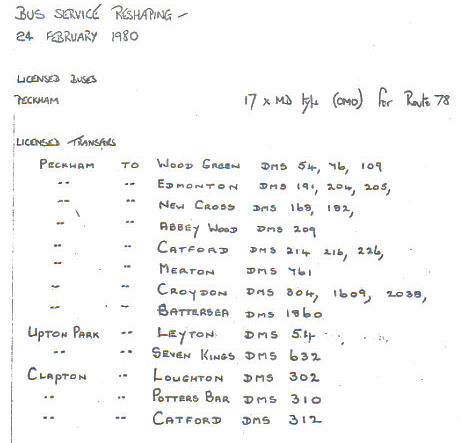 BUS SERVICE RESHAPING –
24 FEBRUARY 1980
LICENSED BUSES
PECKHAM 17 x MD type (OMO) for Route 78
LICENSED TRANSFERS
PECKHAM TO WOOD GREEN DMS 54, 76, 109
" " EDMONTON DMS 191, 204, 205,
" " NEW CROSS DMS 168, 182,
" " ABBEY WOOD DMS 209
" " CATFORD DMS 214 216, 226,
" " MERTON DMS 761
" " CROYDON DMS 304, 1609, 2038,
" " BATTERSEA DMS 1860
UPTON PARK " LEYTON DMS 54
" " SEVEN KINGS DMS 632
CLAPTON " LOUGHTON DMS 302
" " POTTERS BAR DMS 310
" " CATFORD DMS 312